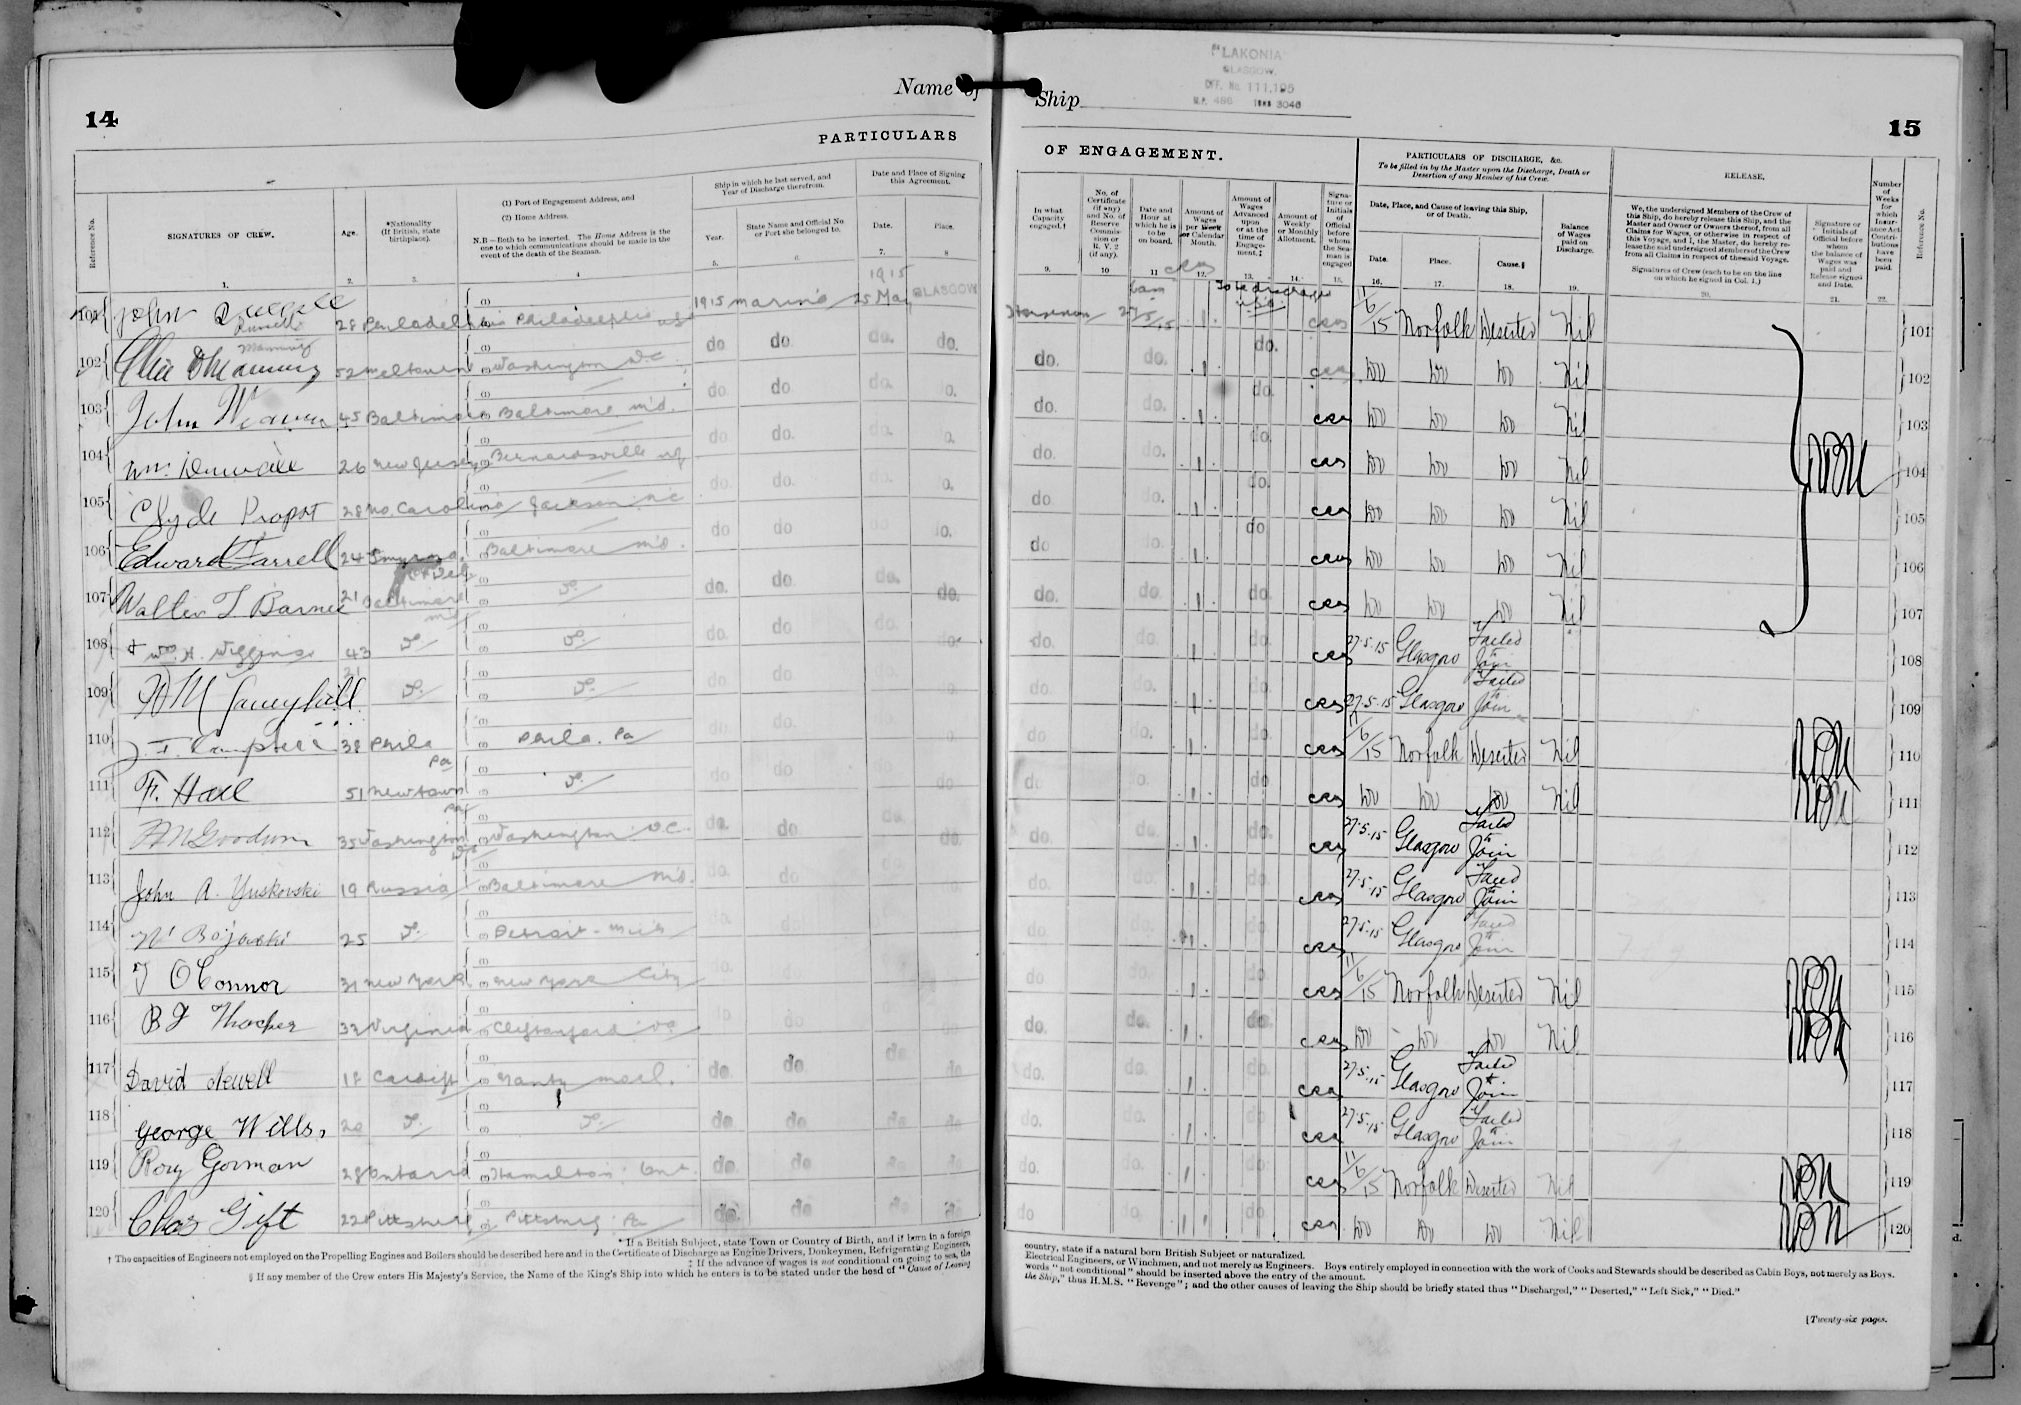 "LAKONIA"
GLASGOW.
OFF. No. 111,195
N.P. 486 TONS 3046
Name of Ship
14
15
PARTICULARS OF ENGAGEMENT.
PARTICULARS OF DISCHARGE, &c.
To be filled in by the Master upon the Discharge, Death or Desertion of any Member of his Crew.
RELEASE.
Reference No.
SIGNATURES OF CREW.
Age.
*Nationality (If British, state birthplace).
(1) Port of Engagement Address, and
(2) Home Address.
N.B.—Both to be inserted. The Home Address is the one to which communications should be made in the event of the death of the Seaman.
Ship in which he last served, and Year of Discharge therefrom.
Year.
State Name and Official No. or Port she belonged to.
Date and Place of Signing this Agreement.
Date.
Place.
In what Capacity engaged.†
No. of Certificate (if any) and No. of Reserve Commission or R. V. 2 (if any).
Date and Hour at which he is to be on board.
Amount of Wages per Week or Calendar Month.
Amount of Wages Advanced upon or at the time of Engagement.‡
Amount of Weekly or Monthly Allotment.
Signature or Initials of Official before whom the Seaman is engaged
Date, Place, and Cause of leaving this Ship, or of Death.
Date.
Place.
Cause.§
Balance of Wages paid on Discharge.
We, the undersigned Members of the Crew of this Ship, do hereby release this Ship, and the Master and Owner or Owners thereof, from all Claims for Wages, or otherwise in respect of this Voyage, and I, the Master, do hereby release the said undersigned Members of the Crew from all Claims in respect of the said Voyage.
Signatures of Crew (each to be on the line on which he signed in Col. 1.)
Signature or Initials of Official before whom the balance of Wages was paid and Release signed and Date.
Number of Weeks for which Insurance Act Contributions have been paid.
Reference No.
101 John 28 Philadelphia Philadelphia 1915 Marina 1915 25 May GLASGOW Horseman 27/5/15 1 To be discharged USA CRS 11/6/15 Norfolk Deserted Nil 101
102 52 Washington D.C. do do. do. do. do. do. 1 do. CRS do do do Nil 102
103 John Weaver 45 Baltimore Baltimore Md. do do do. do. do. 1 do. CRS do do do Nil 103
104 Wm. 26 New Jersey Bernardsville NJ do do. do. do. do. 1 do. CRS do do do Nil 104
105 Clyde Propst 28 No. Carolina Jackson N.C. do. do. do. do do. 1 do. CRS do do do Nil 105
106 Edward Farrell 24 Smyrna Del Baltimore Md. do do do do. do do. 1 do CRS do do do Nil 106
107 Walter T Barnes 21 Baltimore Md Do. do. do do. do. do. do. 1 do. CRS do do do Nil 107
108 + Wm. H. Wiggins 43 Do. Do. do. do do. do. do. do. 1 do. CRS 27.5.15 Glasgow Failed to Join 108
109 21 Do. Do. do do. do. do. do. do. 1 do. CRS 27.5.15 Glasgow Failed to Join 109
110 J. F. Campbell 38 Phila Pa Phila. Pa do do. do. do. do do. 1 do. CRS 11/6/15 Norfolk Deserted Nil 110
111 F. Hall 51 Newtown Pa Do. do do do. do do do. 1 do CRS do do do Nil 111
112 Goodwin 35 Washington DC Washington D.C. do. do do. do. do. do. 1 do. CRS 27.5.15 Glasgow Failed to Join 112
113 John A. Yuskovski 19 Russia Baltimore Md. do. do. do. do do. do. 1 do. CRS 27.5.15 Glasgow Failed to Join 113
114 25 Do. Detroit - Mich do. do. do do. do. do. 1 do CRS 27.5.15 Glasgow Failed to Join 114
115 T O'Connor 31 New York New York City do. do. do. do do do. 1 do CRS 11/6/15 Norfolk Deserted Nil 115
116 B F Thacker 32 Virginia do do. do do do. do. 1 do. CRS do do do Nil 116
117 David Newell 18 Cardiff do. do. do do do. do. 1 do. CRS 27.5.15 Glasgow Failed to Join 117
118 George Wills, 20 Do. Do. do. do do. do do. do. 1 do. CRS 27.5.15 Glasgow Failed to Join 118
119 Rory Gorman 28 Ontario Hamilton Ont. do. do do. do do. do. 1 do. CRS 11/6/15 Norfolk Deserted Nil 119
120 Chas Gift 22 Pittsburg Pittsburg Pa do. do do do do do. 1 do. CRS do do do Nil 120
* If a British Subject, state Town or Country of Birth, and if born in a foreign country, state if a natural born British Subject or naturalized.
† The capacities of Engineers not employed on the Propelling Engines and Boilers should be described here and in the Certificate of Discharge as Engine Drivers, Donkeymen, Refrigerating Engineers, Electrical Engineers, or Winchmen, and not merely as Engineers. Boys entirely employed in connection with the work of Cooks and Stewards should be described as Cabin Boys, not merely as Boys.
‡ If the advance of wages is not conditional on going to sea, the words "not conditional" should be inserted above the entry of the amount.
§ If any member of the Crew enters His Majesty's Service, the Name of the King's Ship into which he enters is to be stated under the head of "Cause of Leaving the Ship," thus H.M.S. "Revenge"; and the other causes of leaving the Ship should be briefly stated thus "Discharged," "Deserted," "Left Sick," "Died."
[Twenty-six pages.